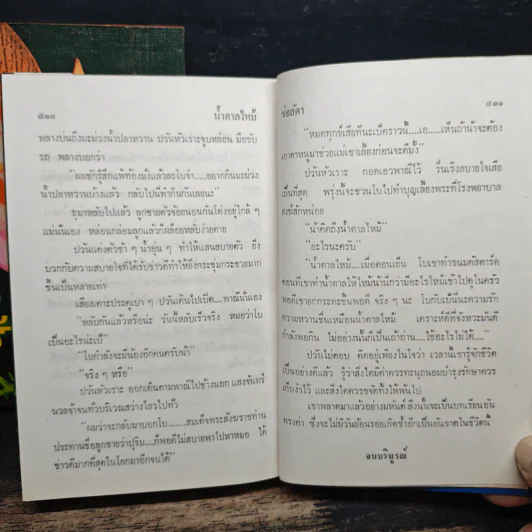 ๘๑๐ น้ำตาลไหม้
พลางบ่นถึงมะม่วงน้ำปลาหวาน ปวันหัวเราะจูบหล่อน มือขับ
รถ พลางบอกว่า
"ผมชักรู้สึกแพ้ท้องมั่งแล้วละโบจ๋า.....อยากกินมะม่วง
น้ำปลาหวานบ้างแล้ว กลับไปนี่ทำกินกันเลยนะ"
ธุมาหลับไปแล้ว ลูกชายตัวจ้อยนอนก้นโด่งอยู่ใกล้ ๆ
แม่นั่นเอง หล่อนกล่อมลูกแล้วก็ผล็อยหลับง่ายดาย
ปวันแต่งตัวช้า ๆ น้ำอุ่น ๆ ทำให้แสนสบายตัว ยิ่ง
บวกกับความสบายใจที่ได้รับข่าวดีทำให้ยิ่งกระชุ่มกระชวยมาก
ขึ้นเป็นหลายเท่า
เสียงเคาะประตูเบา ๆ ปวันเดินไปเปิด....พาณีนั่นเอง
"หลับกันแล้วหรือน่ะ วันนี้หลับเร็วจริง หมอว่าโบ
เป็นอะไรน่ะเป้"
"โบกำลังจะมีน้องอีกคนครับน้า"
"จริง ๆ หรือ"
ปวันหัวเราะ ออกเดินตามพาณีไปข้างนอก แสงจันทร์
นวลจ้าจนทั่วบริเวณสว่างไสวไปทั่ว
"ผมว่าจะกลับมาบอกโบ......สมเด็จพระสังฆราชท่าน
ประทานชื่อลูกชายว่าปุริม....ก็พอดีไม่สบายพาไปหาหมอ ได้
ข่าวดีมากที่สุดในโลกมาอีกจนได้"
ช่อลัดา ๘๑๑
"หมดทุกข์เสียทีนะเป้คราวนี้....เอ.....เห็นถ้าน้าจะต้อง
เอาตาหนูมาช่วยแม่เขาเลี้ยงก่อนจะดีมั้ง"
ปวันหัวเราะ กอดเอวพาณีไว้ รื่นเริงสบายใจเสีย
เป็นที่สุด พรุ่งนี้จะชวนโบไปทำบุญเลี้ยงพระที่โรงพยาบาล
สงฆ์สักหน่อย
"น้าคิดถึงน้ำตาลไหม้"
"อะไรนะครับ"
"น้ำตาลไหม้....เมื่อตอนเย็น โบเขาทำขนมคัสตาร์ด
ตอนที่เขาทำน้ำตาลไหม้น่ะมันมีอะไรไหม้เข้าไปดูในครัว
 จริง ๆ นะ โบกับเป้นั้นความรัก
ความหวานชื่นเหมือนน้ำตาลไหม้ เคราะห์ดีที่จังหวะมันดี
กำลังพอกิน ไม่อย่างนั้นก็เป็นเถ้าถ่าน....ใช้อะไรไม่ได้...."
ปวันไม่ตอบ คิดอยู่เพียงในใจว่า เวลานี้เขารู้จักชีวิต
เป็นอย่างดีแล้ว รู้ว่าสิ่งใดมีค่าควรทะนุถนอมบำรุงรักษาควร
เก็บงำไว้ และสิ่งใดควรขจัดทิ้งให้พ้นไป
เขาพลาดมาแล้วอย่างมหันต์ สิ่งนั้นจะเป็นบทเรียนอัน
ทรงค่า ซึ่งจะไม่มีวันย้อนรอยเกิดซ้ำอีกเป็นอันขาดในชีวิตนี้
จบบริบูรณ์